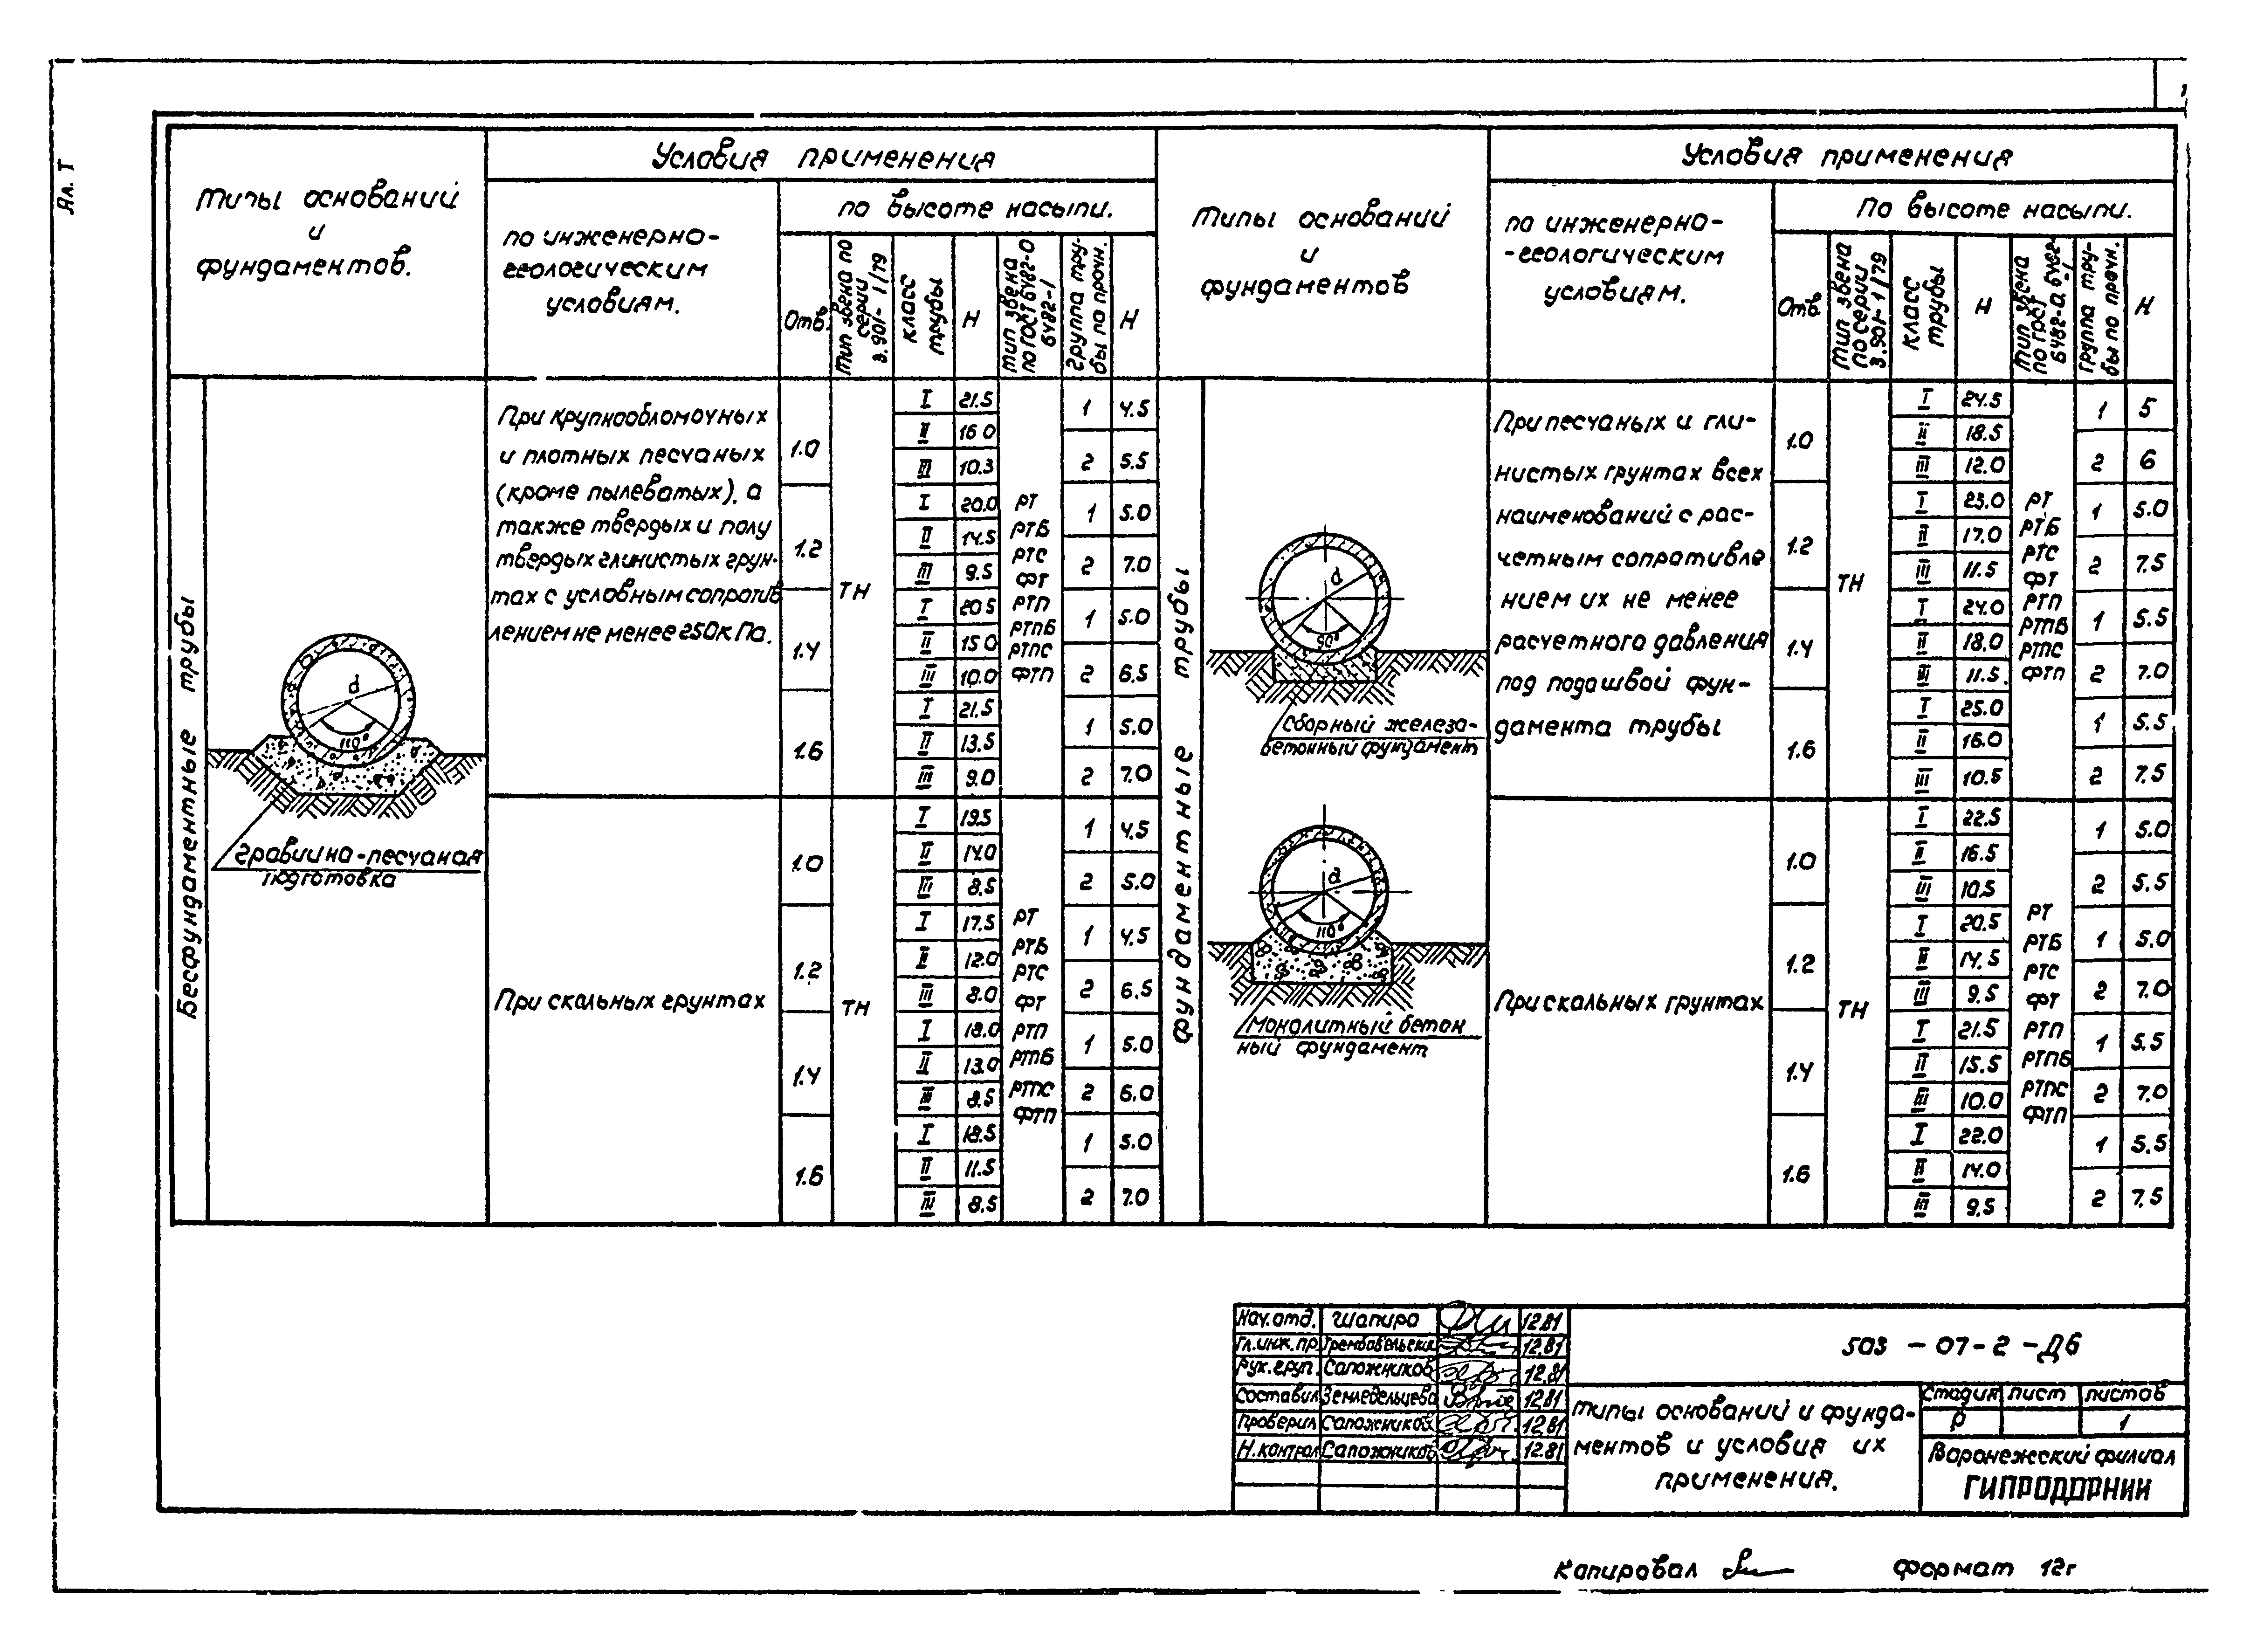 Ал. Т
1
Типы оснований
и
фундаментов.
Условия применения
по инженерно-
геологическим
условиям.
по высоте насыпи.
Отв.
Тип звена по
серии
3.901-1/79
класс
трубы
Н
тип звена
по ГОСТ 6482-0
6482-1
группа тру-
бы по прочн.
Н
Типы оснований
и
фундаментов
Условия применения
по инженерно-
-геологическим
условиям.
По высоте насыпи.
Отв.
Тип звена
по серии
3.901-1/79
класс
трубы
Н
Тип звена
по гост
6482-0, 6482-1
группа тру-
бы по прочн.
Н
Бесфундаментные трубы
d
110°
гравийно-песчаная
подготовка
При крупнообломочных
и плотных песчаных
(кроме пылеватых), а
также твердых и полу
твердых глинистых грун-
тах с условным сопротив
лением не менее 250кПа.
1.0
I 21.5
II 16.0
III 10.3
1 4.5
2 5.5
1.2
I 20.0
II 14.5
III 9.5
1 5.0
2 7.0
1.4
I 20.5
II 15.0
III 10.0
1 5.0
2 6.5
1.6
I 21.5
II 13.5
III 9.0
1 5.0
2 7.0
ТН
РТ
РТБ
РТС
ФТ
РТП
РТПБ
РТПС
ФТП
При скальных грунтах
1.0
I 19.5
II 14.0
III 8.5
1 4.5
2 5.0
1.2
I 17.5
II 12.0
III 8.0
1 4.5
2 6.5
1.4
I 18.0
II 13.0
III 8.5
1 5.0
2 6.0
1.6
I 18.5
II 11.5
III 8.5
1 5.0
2 7.0
ТН
РТ
РТБ
РТС
ФТ
РТП
РТПБ
РТПС
ФТП
фундаментные трубы
d
90°
Сборный железо-
бетонный фундамент
d
110°
Монолитный бетон
ный фундамент
При песчаных и гли-
нистых грунтах всех
наименований с рас-
четным сопротивле
нием их не менее
расчетного давления
под подошвой фун-
дамента трубы
1.0
I 24.5
II 18.5
III 12.0
1 5
2 6
1.2
I 23.0
II 17.0
III 11.5
1 5.0
2 7.5
1.4
I 24.0
II 18.0
III 11.5
1 5.5
2 7.0
1.6
I 25.0
II 16.0
III 10.5
1 5.5
2 7.5
ТН
РТ
РТБ
РТС
ФТ
РТП
РТПБ
РТПС
ФТП
При скальных грунтах
1.0
I 22.5
II 16.5
III 10.5
1 5.0
2 5.5
1.2
I 20.5
II 14.5
III 9.5
1 5.0
2 7.0
1.4
I 21.5
II 15.5
III 10.0
1 5.5
2 7.0
1.6
I 22.0
II 14.0
III 9.5
1 5.5
2 7.5
ТН
РТ
РТБ
РТС
ФТ
РТП
РТПБ
РТПС
ФТП
Нач.отд. Шапиро 12.81
Гл.инж.пр. 12.81
Рук.груп. Сапожников 12.81
Составил Земледельцева 12.81
Проверил Сапожников 12.81
Н.контрол Сапожников 12.81
503-07-2-Д6
Типы оснований и фунда-
ментов и условия их
применения.
Стадия лист листов
Р 1
Воронежский филиал
ГИПРОДОРНИИ
Копировал
формат 12г